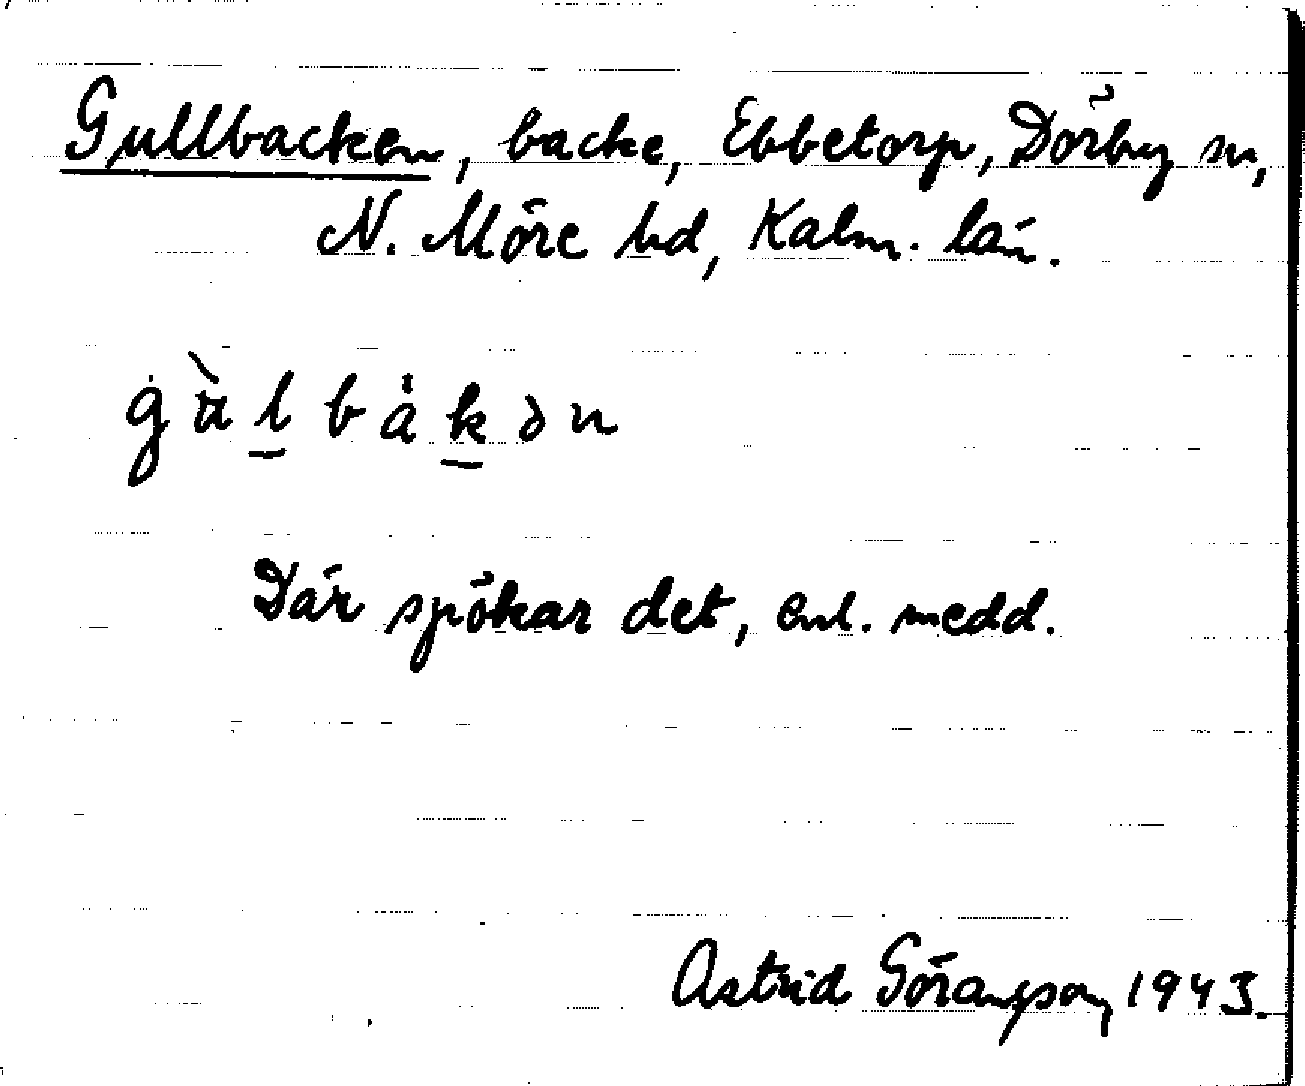 Gullbacken, backe, Ebbetorp, Dörby sn,
N. Möre hd, Kalm. län.
gu̇̀l̲bȧk̲ən
Där spökar det, enl. medd.
Astrid Göransson 1943.